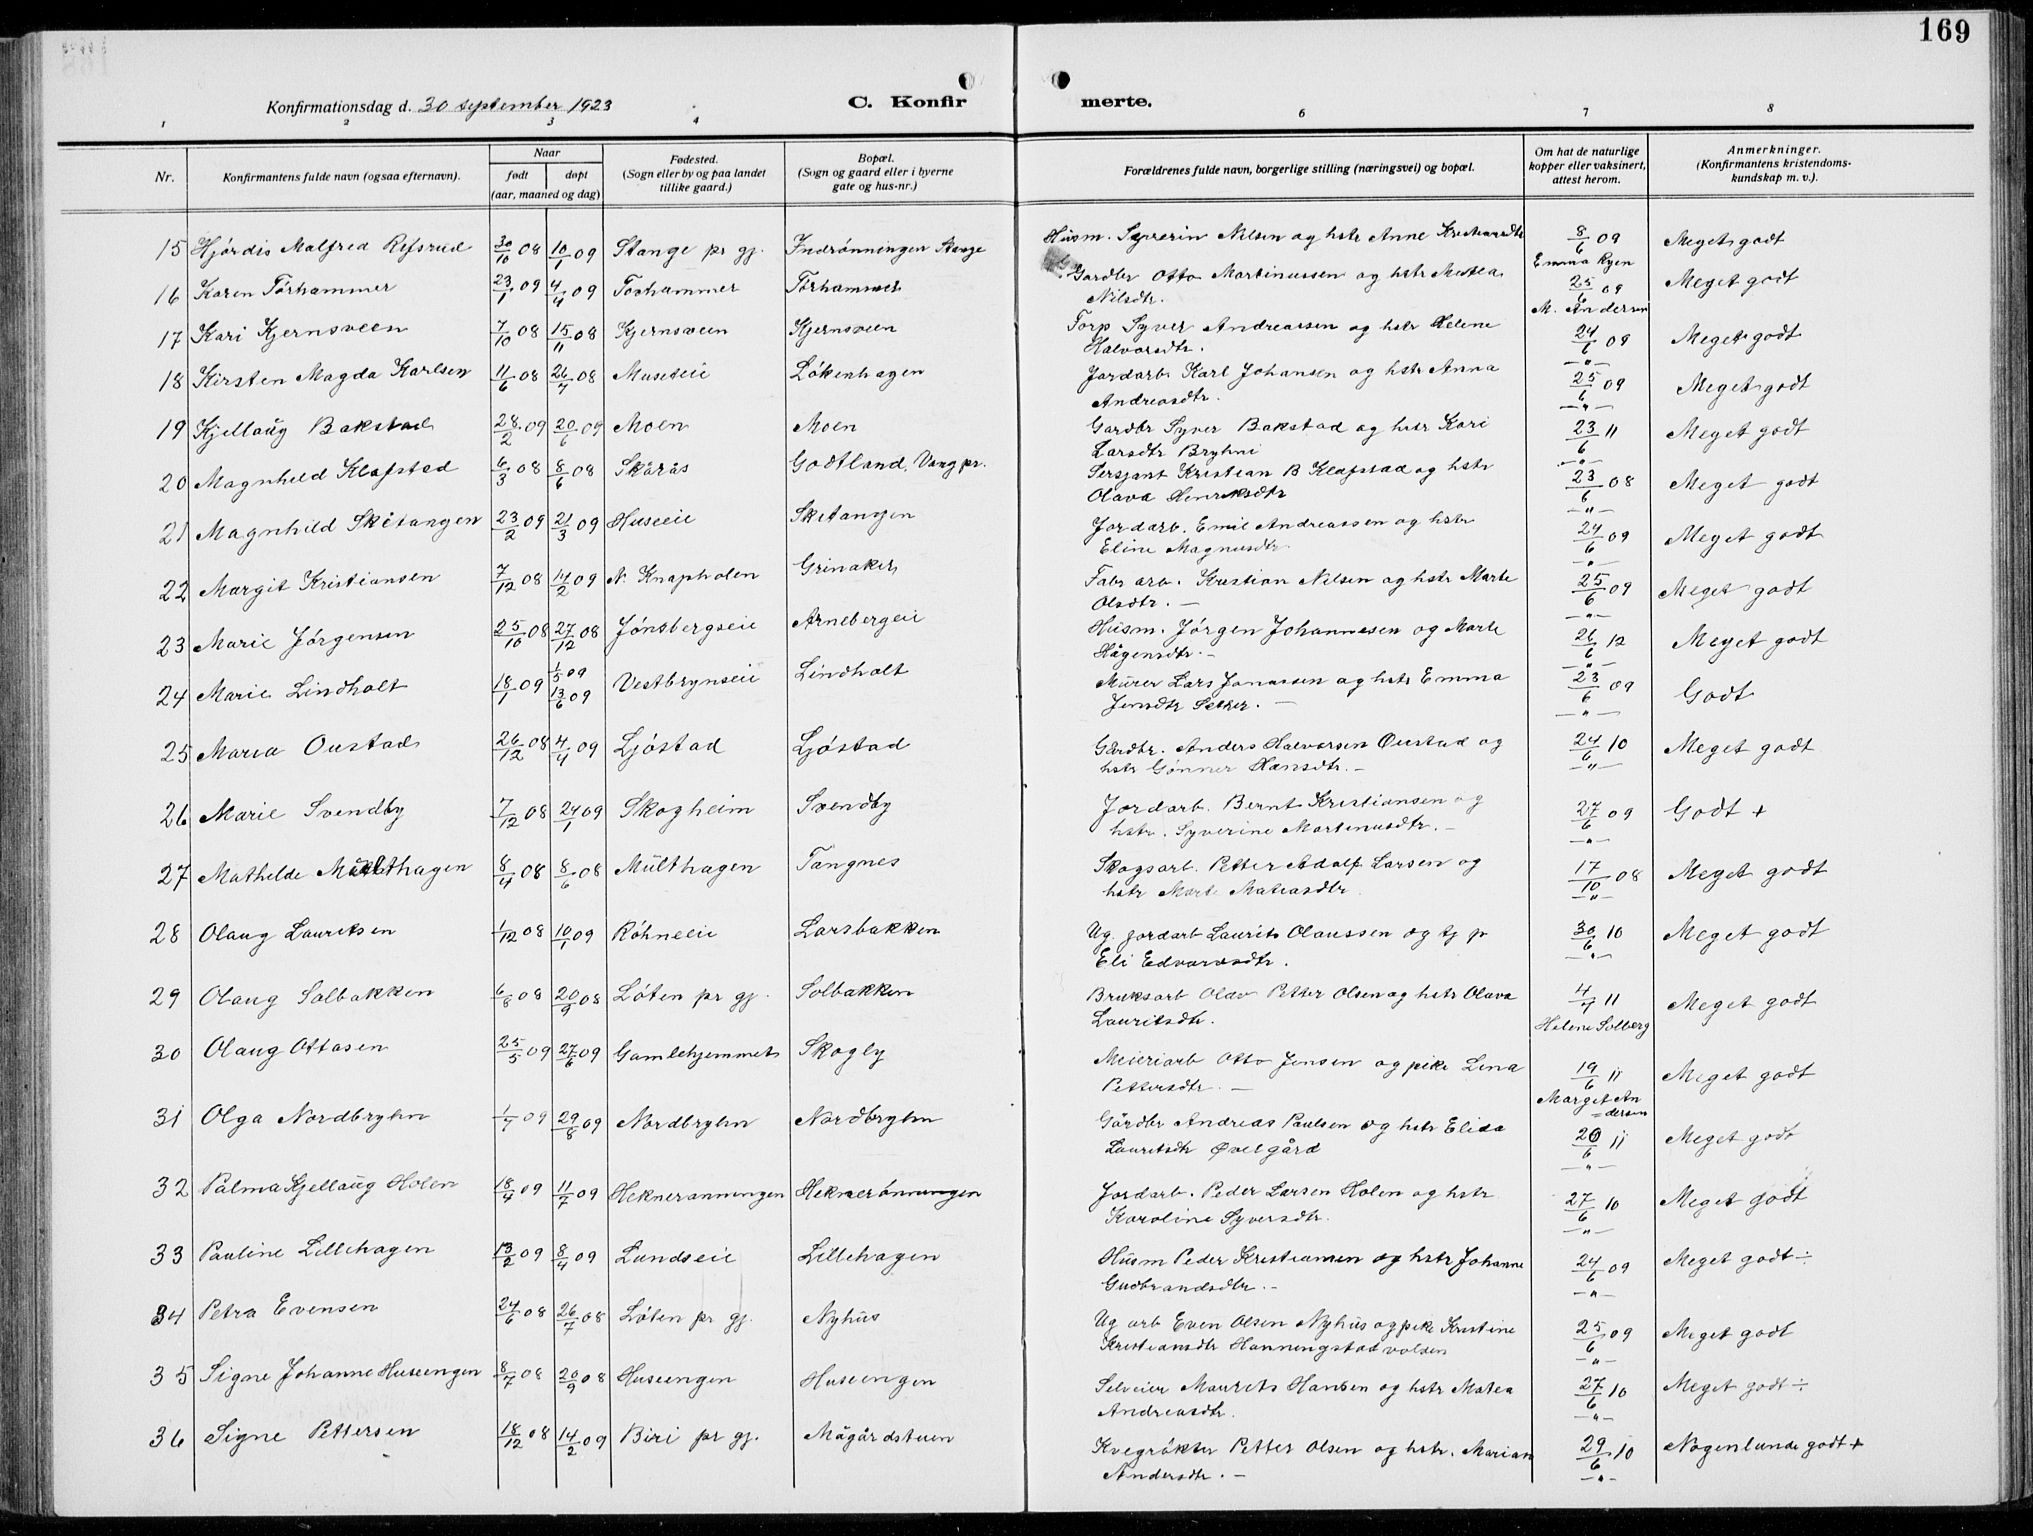 169
Konfirmationsdag d. 30 september 1923
C. Konfir merte.
1 2 3 4 6 7 8
Nr. Konfirmantens fulde navn (ogsaa efternavn). Naar født døpt (aar, maaned og dag) Fødested. (Sogn eller by og paa landet tillike gaard.) Bopæl. (Sogn og gaard eller i byerne gate og hus-nr.) Forældrenes fulde navn, borgerlige stilling (næringsvei) og bopæl. Om hat de naturlige kopper eller vaksinert, attest herom. Anmerkninger. (Konfirmantens kristendoms-kundskap m. v.).
15 Hjørdis Malfred Refsrud 30/10 08 10/1 09 Stange pr gj. Indrønningen Stange Husm. Syverin Nilsen og hstr Anne 8/6 09 Meget godt
Emma Ryen
16 Karen Tørhammer 23/1 09 4/4 09 Torhammer Tørhammer Gardbr Otto Martinussen og hstr Matea 25/6 09 Meget godt
Nilsdtr. M. Andersen
17 Kari Kjernsveen 7/10 08 15/11 08 Kjernsveen Kjernsveen Torp Syver Andreassen og hstr Helene 24/6 09 Meget godt
Halvorsdtr. —"—
18 Kirsten Magda Karlsen 11/6 08 26/7 08 Museteie Løkenhagen Jordarb. Karl Johansen og hstr Anna 25/6 09 Meget godt
Andreasdtr. —"—
19 Kjellaug Bakstad 28/2 09 20/6 09 Moen Moen Gardbr Syver Bakstad og hstr Kari 23/6 11 Meget godt
Larsdtr Bryhni —"—
20 Magnhild Klafstad 6/3 08 8/6 08 Skårås Godtland, Vang pr. Sersjant Kristian B Klafstad og hstr 23/6 08 Meget godt
Olava Henriksdtr —"—
21 Magnhild Sketangen 23/2 09 21/3 09 Huseeie Sketangen Jordarb. Emil Andreassen og hstr 24/6 09 Meget godt
Eline Magnusdtr. —"—
22 Margit Kristiansen 7/12 08 14/2 09 N. Knapholen Grinaker Fabr arb. Kristian Nilsen og hstr Marte 25/6 09 Meget godt
Olsdtr. — —"—
23 Marie Jørgensen 25/10 08 27/12 08 Jønsbergseie Arnebergeie Husm. Jørgen Johannesen og Marte 26/6 12 Meget godt
Hågensdtr. — —"—
24 Marie Lindholt 18/1 09 1/5 09 13/6 09 Vestbrynseie Lindholt Murer Lars Jonassen og hstr Emma 23/6 09 Godt
Jensdtr Sether. — —"—
25 Maria Oustad 26/12 08 4/4 09 Ljøstad Ljøstad Gårdbr. Anders Halvorsen Oustad og 24/6 10 Meget godt
hstr Gønner Hansdtr. — —"—
26 Marie Svendby 7/12 08 24/1 09 Skogheim Svendby Jordarb. Bernt Kristiansen og 27/6 09 Godt +
hstr. Syverine Martinusdtr. — —"—
27 Mathilde Multhagen 8/4 08 8/6 08 Multhagen Tangnes Skogsarb. Petter Adolf Larsen og 17/10 08 Meget godt
hstr Marte Matiasdtr. —"—
28 Olaug Lauritsen 1/12 08 10/1 09 Røhneeie Larsbakken Ug. jordarb Laurits Olaussen og tj p 30/6 10 Meget godt
Eli Edvardsdtr. —"—
29 Olaug Solbakken 6/8 08 20/9 08 Løten pr gj. Solbakken Bruksarb Olav Petter Olsen og hstr Olava 4/7 11 Meget godt
Lauritsdtr. Helene Solberg
30 Olaug Ottosen 25/5 09 27/6 09 Gamlehjemmet Skogly Meieriarb Otto Jensen og pike Lina 19/6 11 Meget godt
Pettersdtr. — Marget An=dersen
31 Olga Nordbryhn 1/7 09 29/8 09 Nordbryhn Nordbryhn Gårdbr Andreas Paulsen og hstr Elida 20/6 11 Meget godt
Lauritsdtr Øvergård —"—
32 Palma Kjellaug Holen 18/4 09 11/7 09 Hekneranningen Heknerønningen Jordarb. Peder Larsen Holen og hstr 27/6 10 Meget godt
Karoline Syversdtr. —"—
33 Pauline Lillehagen 13/2 09 8/4 09 Lundseie Lillehagen Husm Peder Kristiansen og hstr Johanne 24/6 09 Meget godt ÷
Gudbrandsdtr. — —"—
34 Petra Evensen 24/6 08 26/7 08 Løten pr gj. Nyhus Ug arb Even Olsen Nyhus og pike Kristine 25/6 09 Meget godt
Kristiansdtr Hanningstadvolden —"—
35 Signe Johanne Huseengen 8/7 08 20/9 08 Huseengen Huseengen Selveier Maurits Hansen og hstr Matea 27/6 10 Meget godt ÷
Andreasdtr. —"—
36 Signe Pettersen 18/12 08 14/2 09 Biri pr gj. Mågårdstuen Kvegrøkter Petter Olsen og hstr. Marian 29/6 10 Nogenlunde godt +
Andersdtr. — —"—